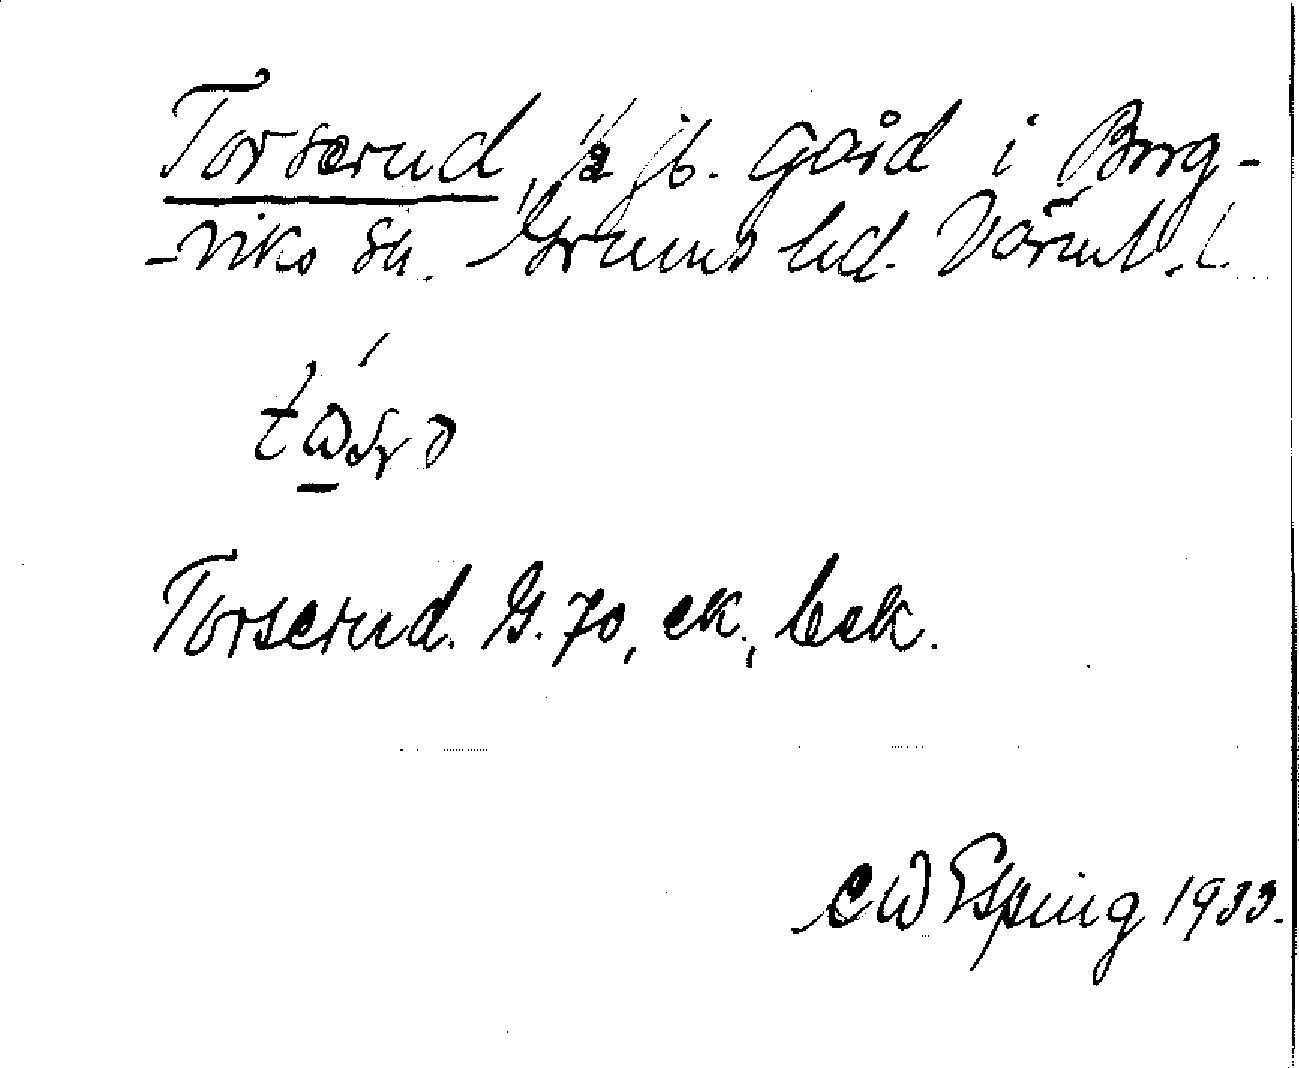 Torserud, 1/2 jb. gård i Borg-
-viks sn. Grums hd. Värml. l.
Torserud. G. 70, ek., bok.
C W Esping 1933.